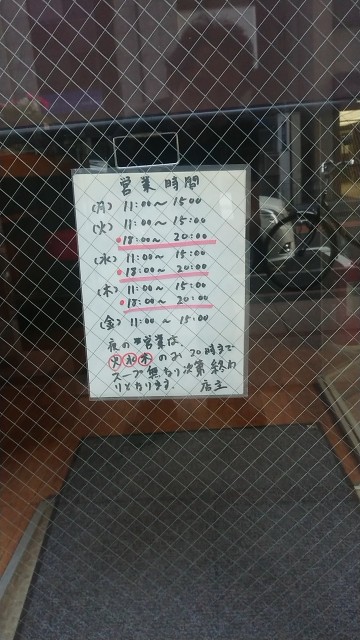 営業時間
(月) 11:00～15:00
(火) 11:00～15:00
•18:00～20:00
(水) 11:00～15:00
•18:00～20:00
(木) 11:00～15:00
•18:00～20:00
(金) 11:00～15:00
夜の営業は、
火水木のみ 20時まで
スープ無なり次第終わ
りとなります。 店主